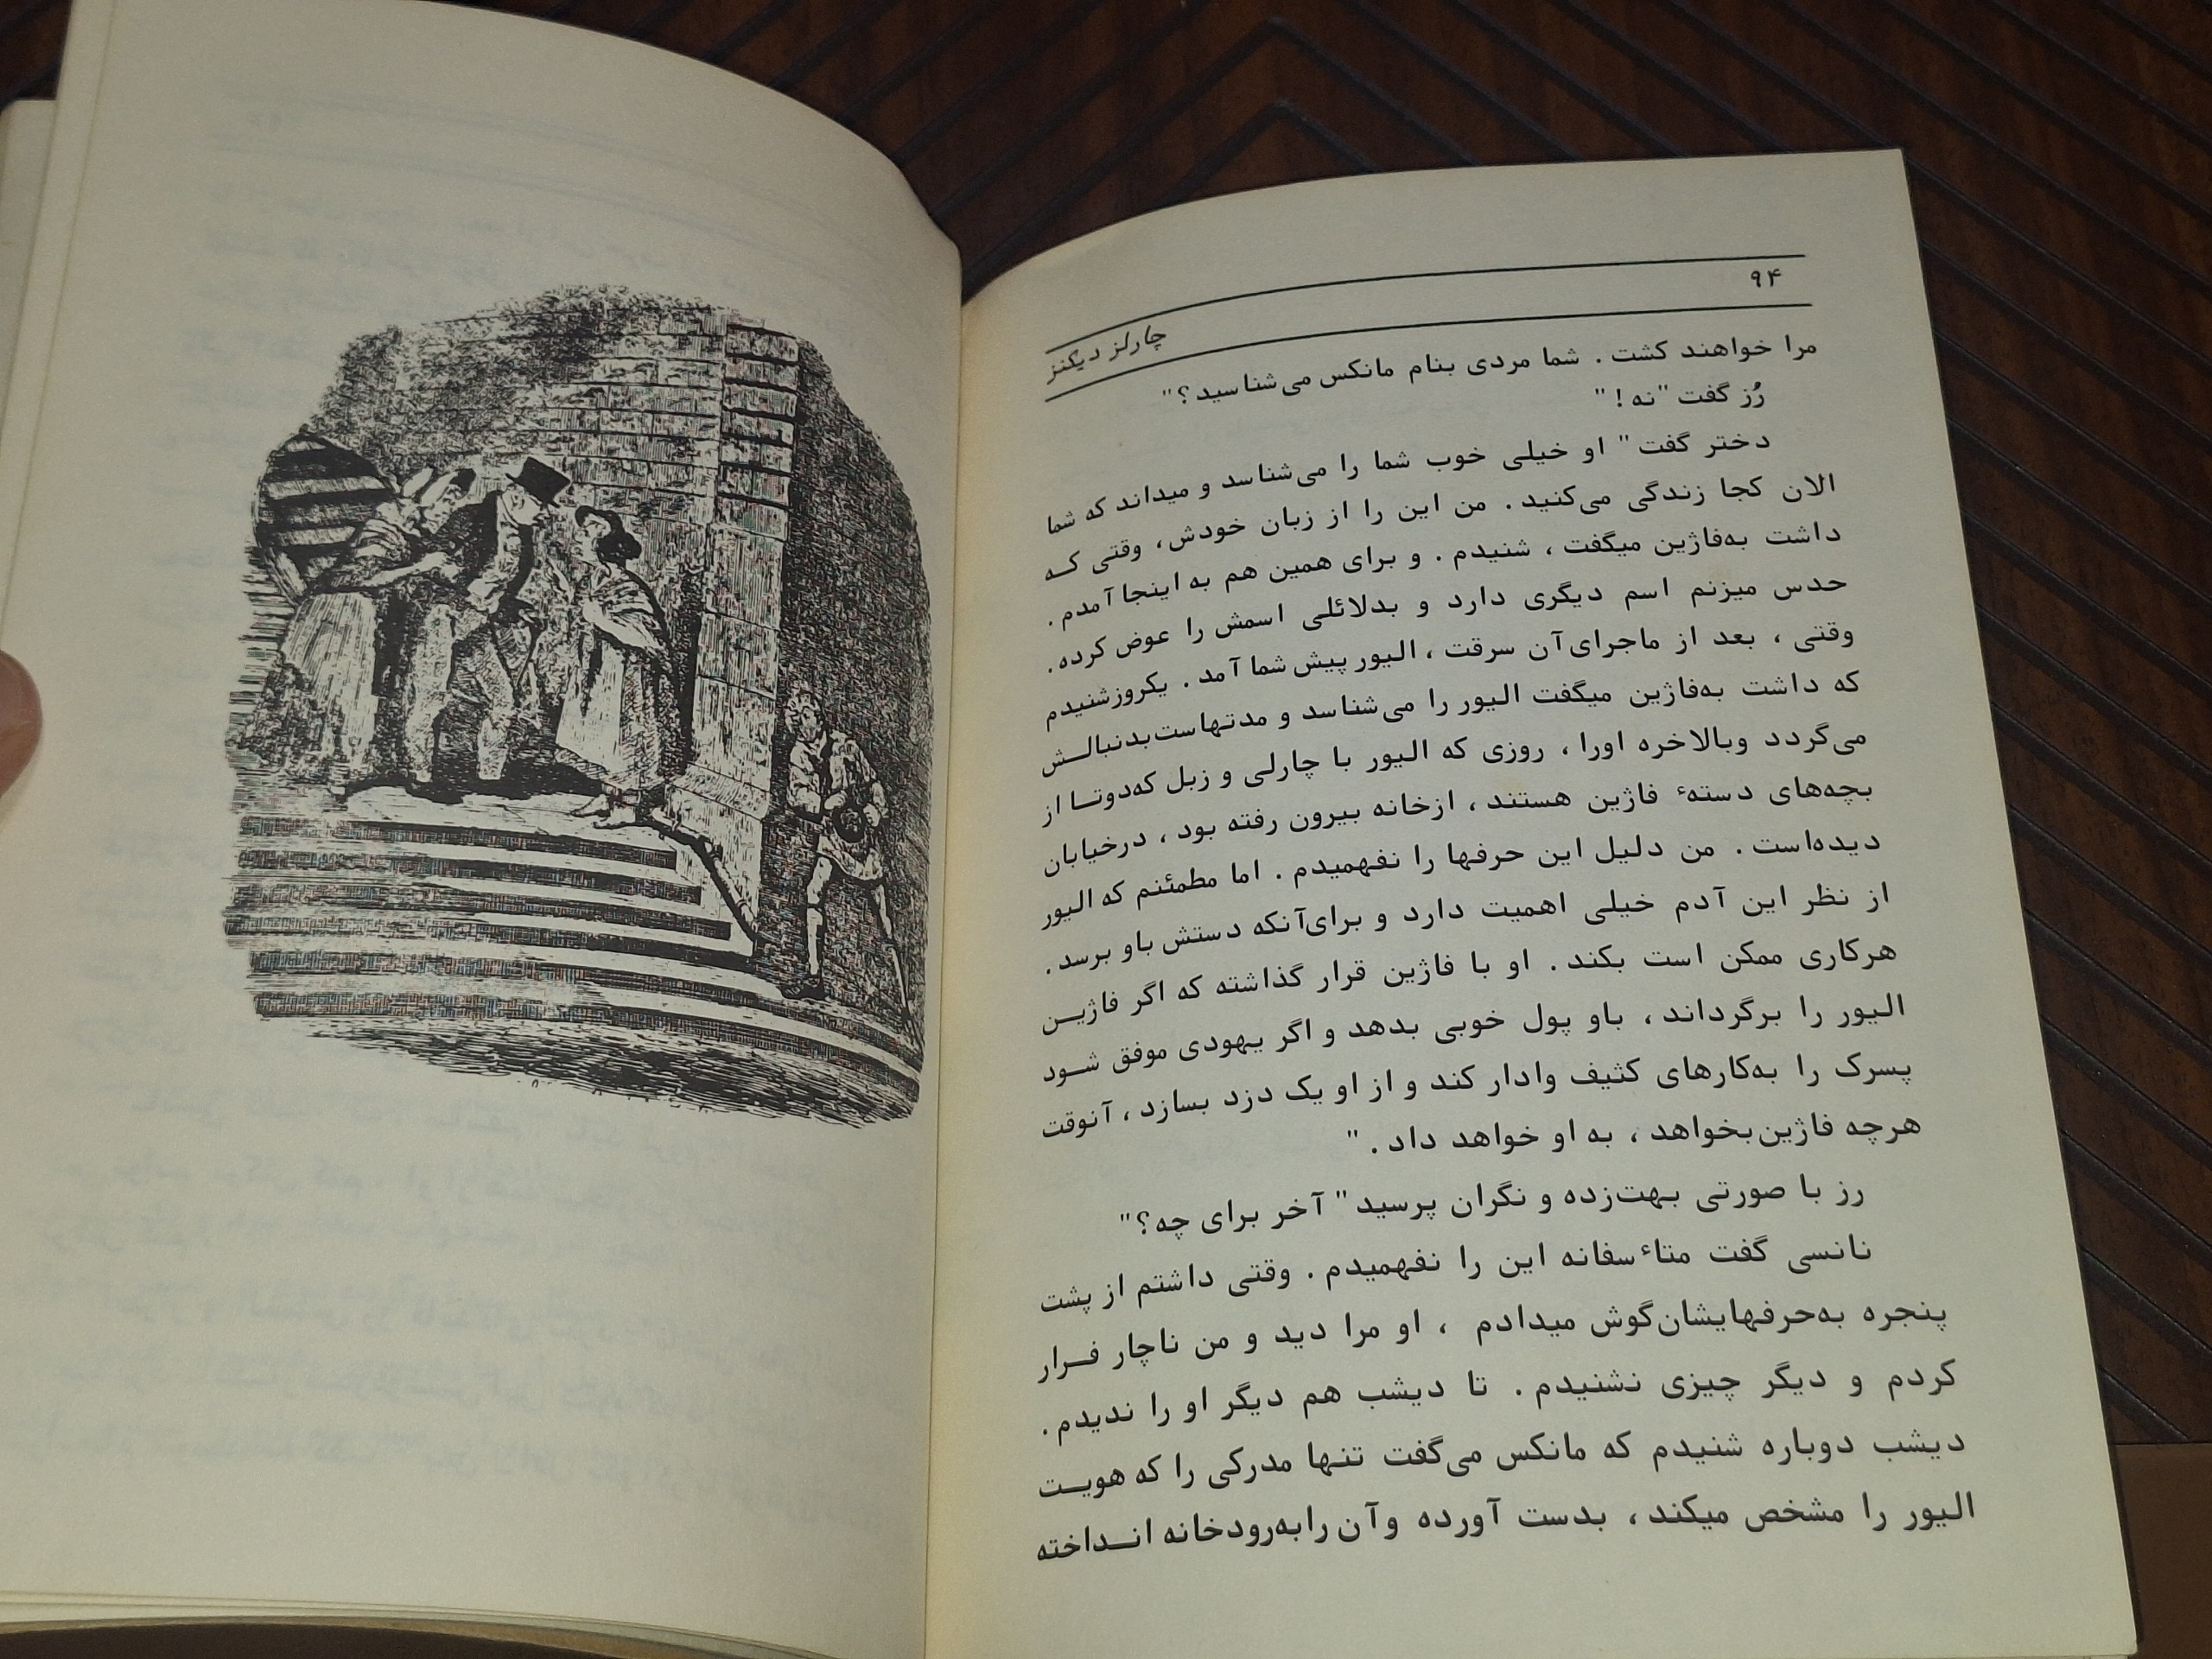 ۹۴
چارلز دیکنز
مرا خواهند کشت . شما مردی بنام مانکس می‌شناسید؟"
رُز گفت "نه ! "
دختر گفت " او خیلی خوب شما را می‌شناسد و میداند که شما
الان کجا زندگی می‌کنید . من این را از زبان خودش، وقتی کـه
داشت به‌فاژین میگفت ، شنیدم . و برای همین هم به اینجا آمدم .
حدس میزنم اسم دیگری دارد و بدلائلی اسمش را عوض کرده .
وقتی ، بعد از ماجرای‌آن سرقت ، الیور پیش شما آمد . یکروزشنیدم
که داشت به‌فاژین میگفت الیور را می‌شناسد و مدتهاست‌بدنبالـش
می‌گردد وبالاخره اورا ، روزی که الیور با چارلی و زبل که‌دوتـا از
بچه‌های دستهٔ فاژین هستند ، ازخانه بیرون رفته بود ، درخیابان
دیده‌است . من دلیل این حرفها را نفهمیدم . اما مطمئنم که الیور
از نظر این آدم خیلی اهمیت دارد و برای‌آنکه دستش باو برسد .
هرکاری ممکن است بکند . او با فاژین قرار گذاشته که اگر فاژیـن
الیور را برگرداند ، باو پول خوبی بدهد و اگر یهودی موفق شـود
پسرک را به‌کارهای کثیف وادار کند و از او یک دزد بسازد ، آنوقت
هرچه فاژین‌بخواهد ، به او خواهد داد . "
رز با صورتی بهت‌زده و نگران پرسید " آخر برای چه؟"
نانسی گفت متاٴسفانه این را نفهمیدم . وقتی داشتم از پشت
پنجره به‌حرفهایشان‌گوش میدادم ، او مرا دید و من ناچار فـرار
کردم و دیگر چیزی نشنیدم . تا دیشب هم دیگر او را ندیدم .
دیشب دوباره شنیدم که مانکس می‌گفت تنها مدرکی را که هویـت
الیور را مشخص میکند ، بدست آورده وآن رابه‌رودخانه انـداخته